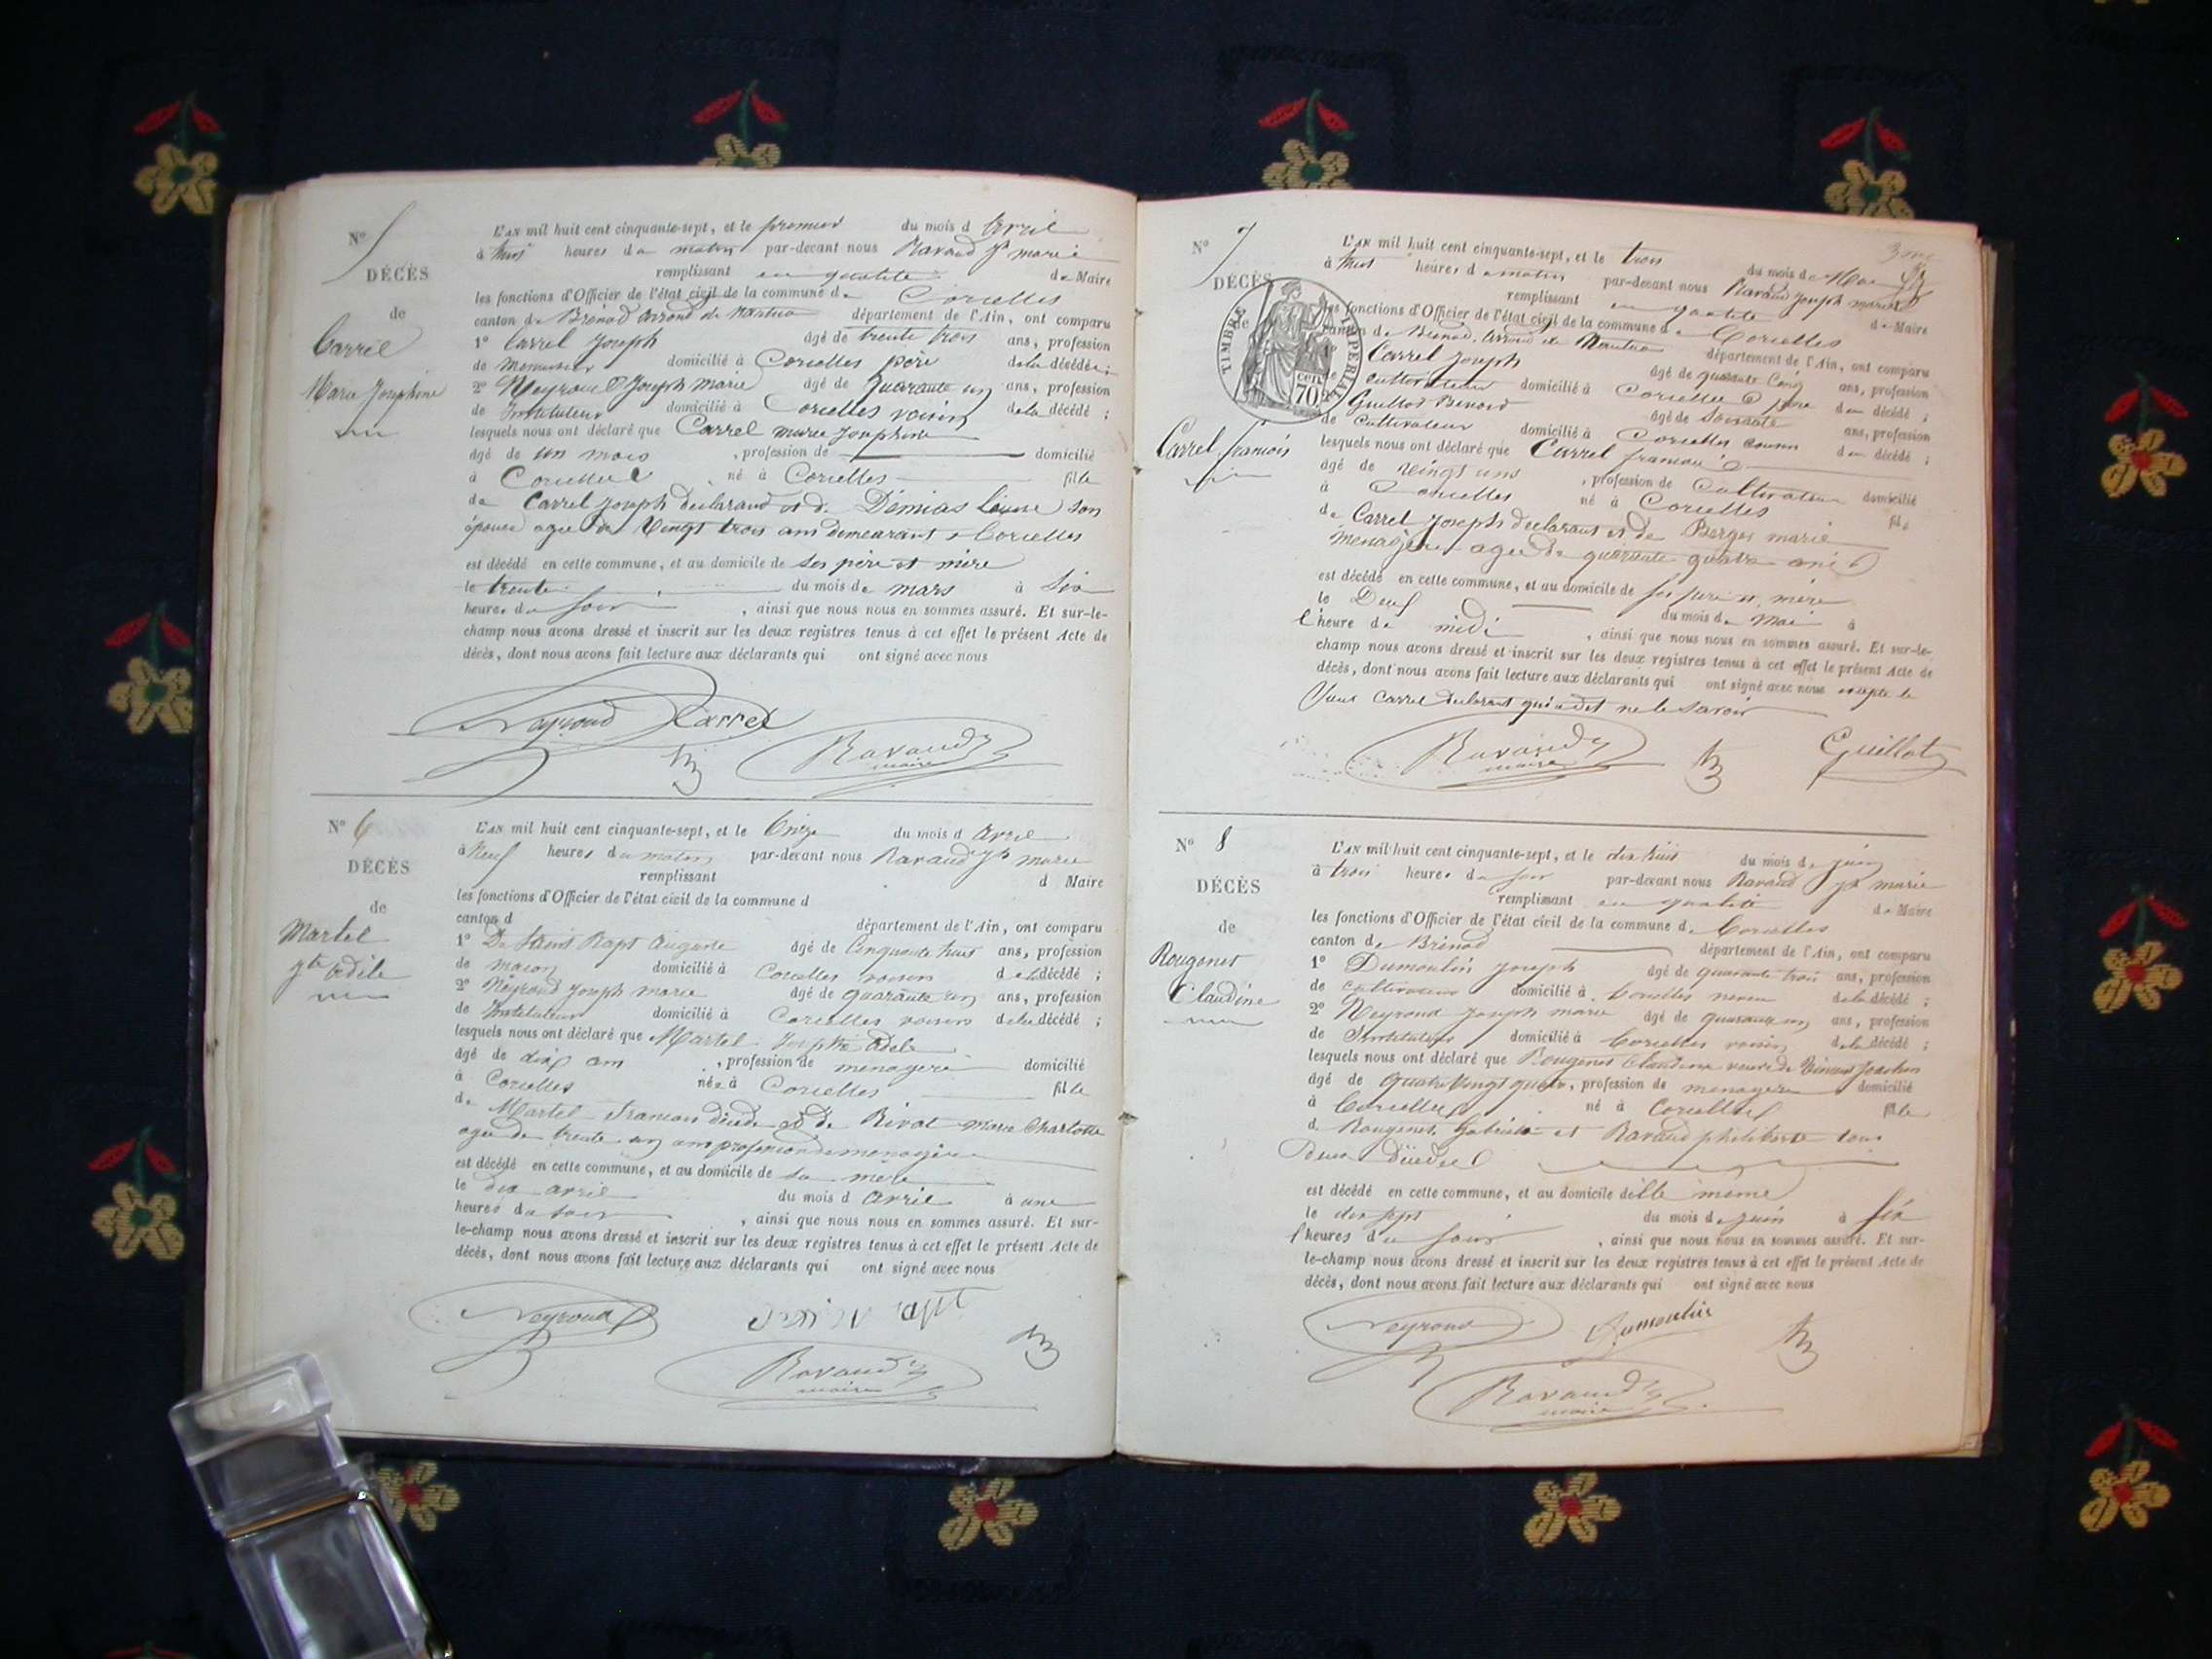 N° 5
DÉCÈS
de
Carrel
Marie Josephine
L'AN mil huit cent cinquante-sept, et le premier du mois d Avril
à huit heures du matin par-devant nous Ravaud Jh marie
remplissant en qualité de Maire
les fonctions d'Officier de l'état civil de la commune de Corcelles
canton de Brénod arrond de Nantua département de l'Ain, ont comparu
1° Carrel Joseph âgé de trente trois ans, profession
de Menuisier domicilié à Corcelles père de la décédée ;
2° Neyroud Joseph Marie âgé de Quarante un ans, profession
de Instituteur domicilié à Corcelles voisin de la décédé ;
lesquels nous ont déclaré que Carrel marie Josephine
âgé de un mois , profession de domicilié
à Corcelles né à Corcelles fille
de Carrel Joseph déclarant et de Démias Louise son
épouse agée de Vingt trois ans demeurant à Corcelles
est décédé en cette commune, et au domicile de ses père et mère
le trente du mois de mars à Six
heures du soir , ainsi que nous nous en sommes assuré. Et sur-le-
champ nous avons dressé et inscrit sur les deux registres tenus à cet effet le présent Acte de
décès, dont nous avons fait lecture aux déclarants qui ont signé avec nous
Neyroud Carrel
Ravaud
maire
N° 6
DÉCÈS
de
Martel
Jte Adèle
L'AN mil huit cent cinquante-sept, et le Onze du mois d Avril
à Neuf heures du matin par-devant nous Ravaud Jh marie
remplissant d Maire
les fonctions d'Officier de l'état civil de la commune d
canton d département de l'Ain, ont comparu
1° De Saint Rapt Auguste âgé de Cinquante huit ans, profession
de maçon domicilié à Corcelles voisin de la décédé ;
2° Neyroud Joseph marie âgé de quarante un ans, profession
de Instituteur domicilié à Corcelles voisin de la décédé ;
lesquels nous ont déclaré que Martel Josephte Adele
âgé de dix ans , profession de menagere domicilié
à Corcelles née à Corcelles fille
de Martel Francois décédé et de Rivat Marie Charlotte
agée de trente un ans profession de menagère
est décédé en cette commune, et au domicile de sa mère
le dix avril du mois d Avril à une
heures du soir , ainsi que nous nous en sommes assuré. Et sur-
le-champ nous avons dressé et inscrit sur les deux registres tenus à cet effet le présent Acte de
décès, dont nous avons fait lecture aux déclarants qui ont signé avec nous
Neyroud
Ravaud
maire
N° 7
DÉCÈS
de
TIMBRE IMPERIAL
70
Carrel francois
L'AN mil huit cent cinquante-sept, et le trois du mois de Mai
à huit heures du matin par-devant nous Ravaud Joseph marie
remplissant en qualité de Maire
les fonctions d'Officier de l'état civil de la commune de Corcelles
canton de Brénod, arrond de Nantua département de l'Ain, ont comparu
Carrel Joseph âgé de quarante Cinq ans, profession
cultivateur domicilié à Corcelles père du décédé ;
Guillot Benoit âgé de Soixante ans, profession
de cultivateur domicilié à Corcelles cousin du décédé ;
lesquels nous ont déclaré que Carrel francois
âgé de vingt ans , profession de Cultivateur domicilié
à Corcelles né à Corcelles fils
de Carrel Joseph declarant et de Berger marie
menagère agée de quarante quatre ans
est décédé en cette commune, et au domicile de ses père et mère
le Deux du mois de Mai à
l'heure de midi , ainsi que nous nous en sommes assuré. Et sur-le-
champ nous avons dressé et inscrit sur les deux registres tenus à cet effet le présent Acte de
décès, dont nous avons fait lecture aux déclarants qui ont signé avec nous excepté le
Sieur Carrel declarant qui a dit ne le Savoir
Ravaud
maire
Guillot
N° 8
DÉCÈS
de
Rougenet
Claudine
L'AN mil huit cent cinquante-sept, et le dix huit du mois de juin
à trois heures du soir par-devant nous Ravaud Jh marie
remplissant en qualité de Maire
les fonctions d'Officier de l'état civil de la commune de Corcelles
canton de Brénod département de l'Ain, ont comparu
1° Dumoulin Joseph âgé de quarante trois ans, profession
de cultivateur domicilié à Corcelles neveu de la décédé ;
2° Neyroud Joseph marie âgé de quarante un ans, profession
de Instituteur domicilié à Corcelles voisin de la décédé ;
lesquels nous ont déclaré que Rougenet Claudine veuve de Joachim
âgé de Quatre Vingt quatre, profession de menagère domicilié
à Corcelles né à Corcelles fille
d Rougenet et Ravaud philiberte tous
Deux Décédés
est décédé en cette commune, et au domicile d'elle même
le dix sept du mois de juin à Six
heures du soir , ainsi que nous nous en sommes assuré. Et sur-
le-champ nous avons dressé et inscrit sur les deux registres tenus à cet effet le présent Acte de
décès, dont nous avons fait lecture aux déclarants qui ont signé avec nous
Neyroud Dumoulin
Ravaud
maire